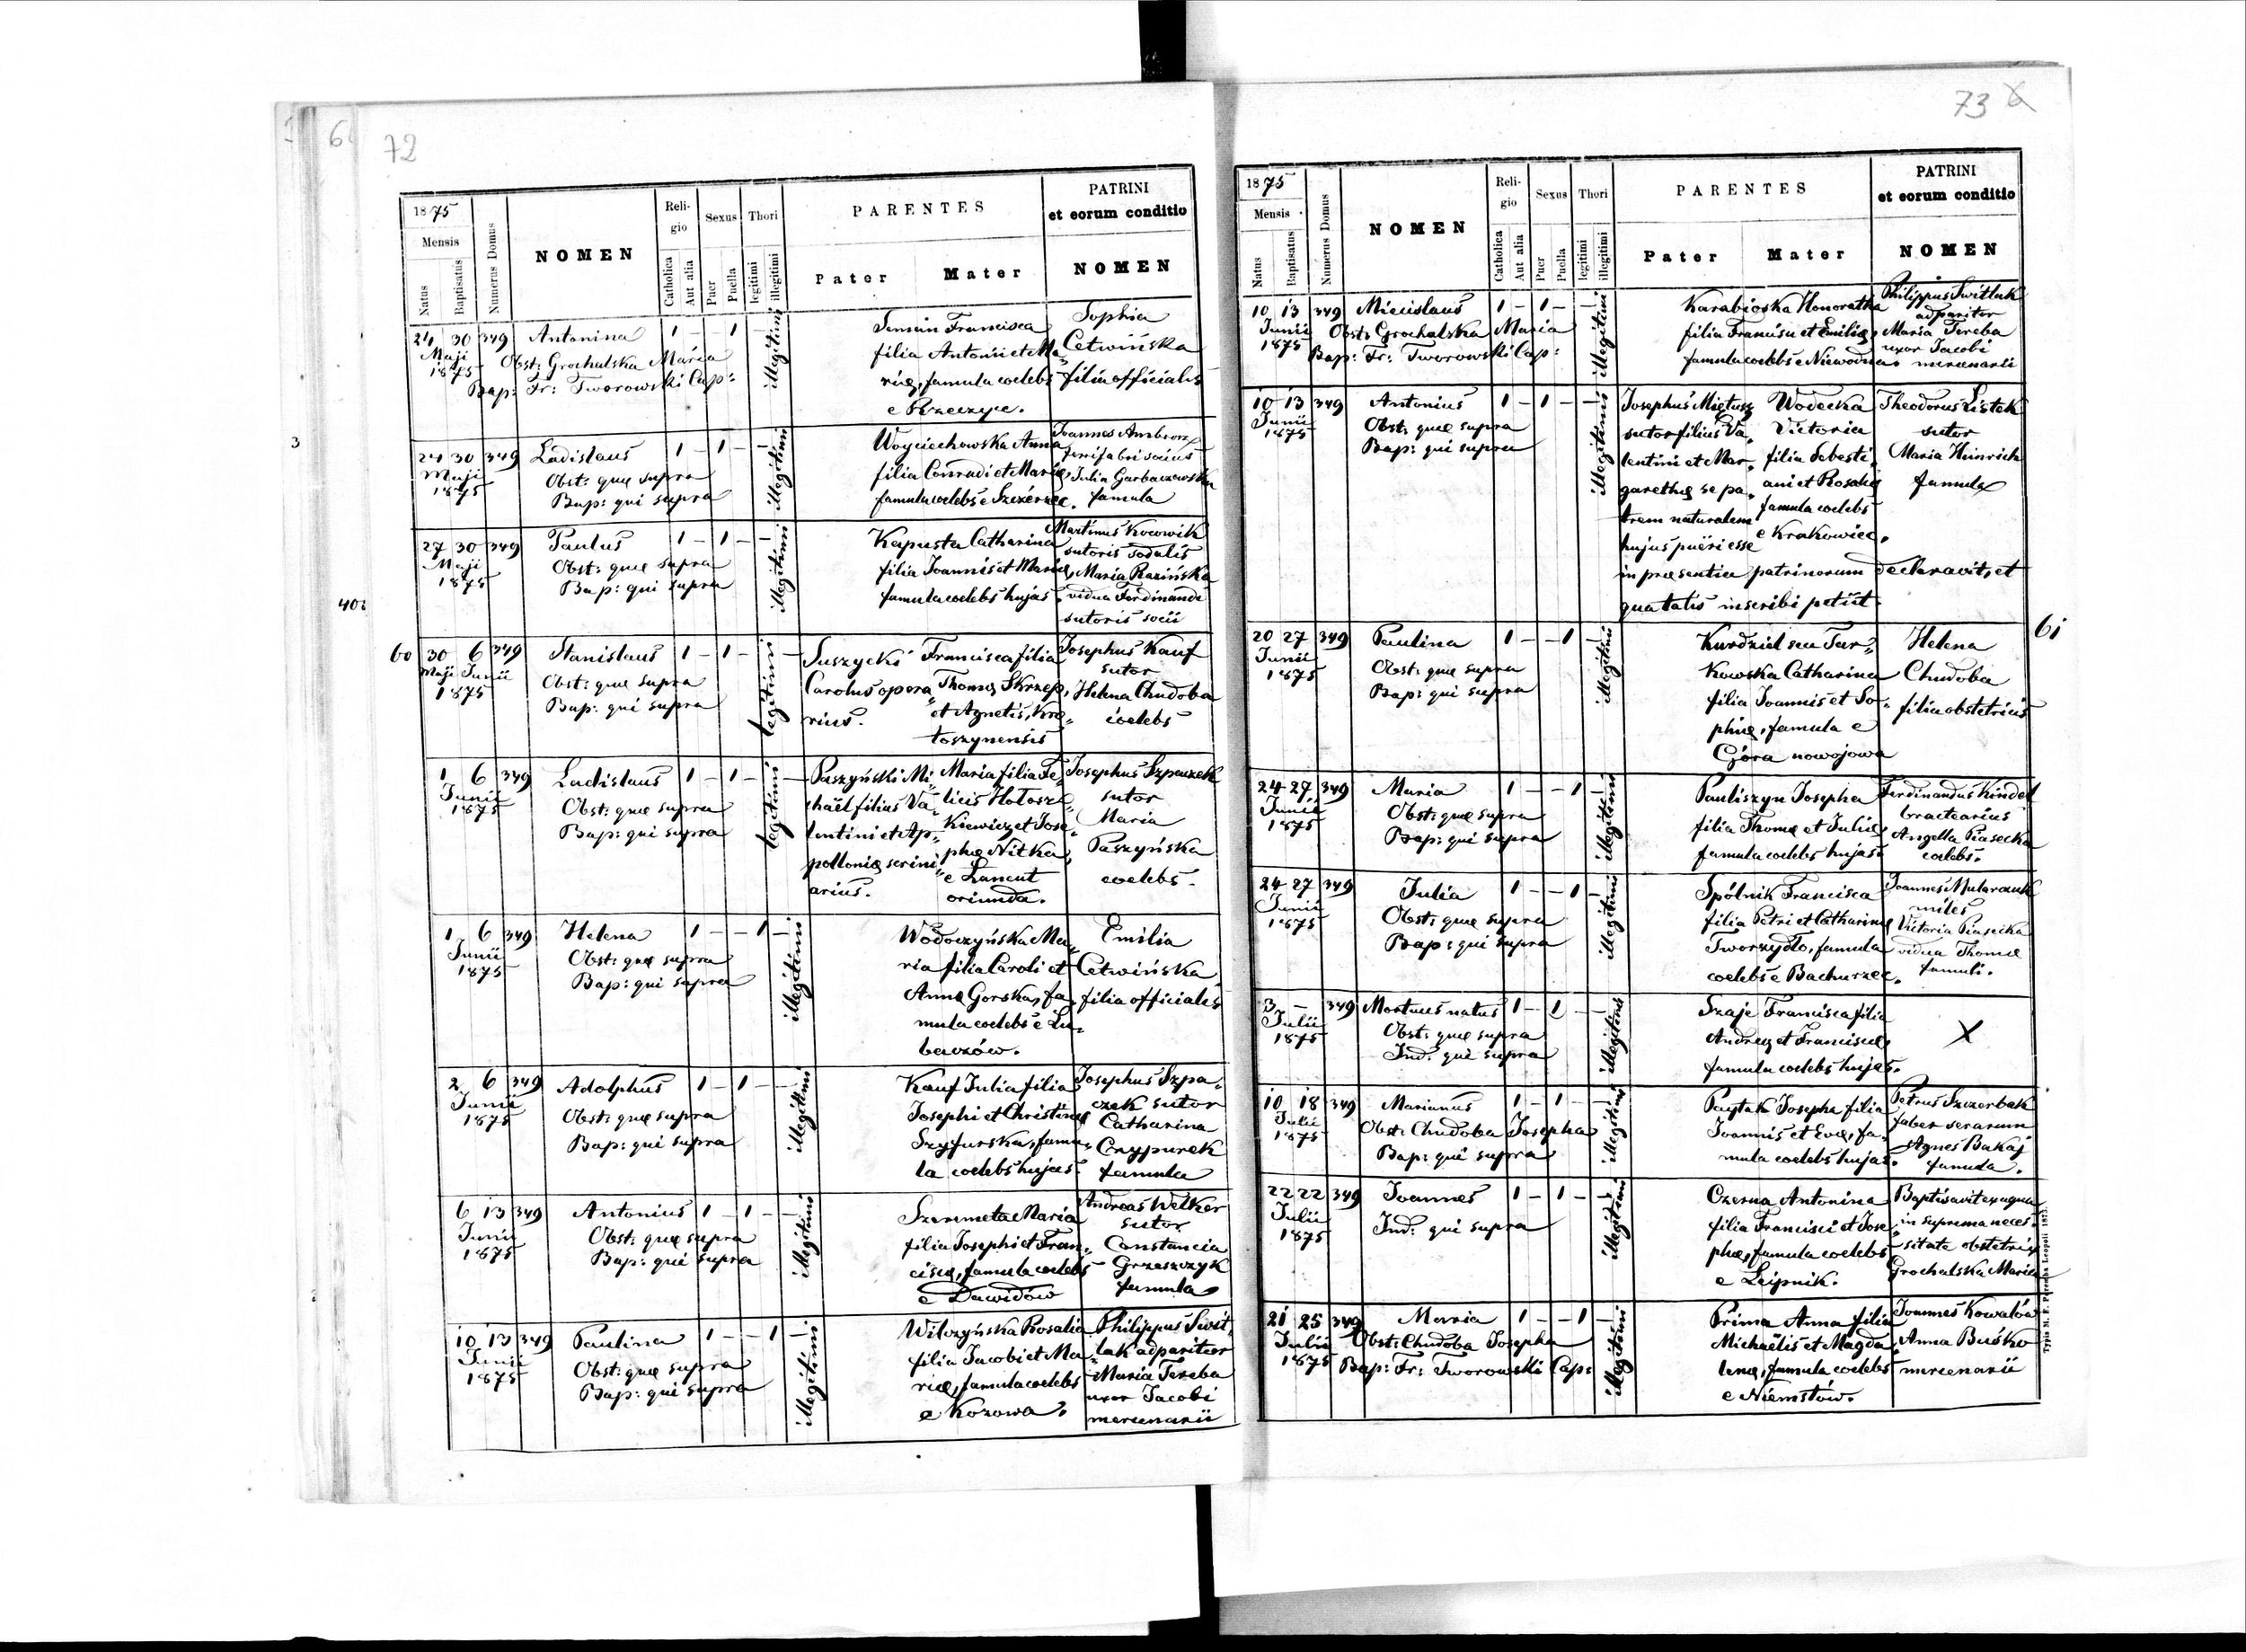 72
1875
Mensis
Natus
Baptisatus
Numerus Domus
NOMEN
Religio
Catholica
Aut alia
Sexus
Puer
Puella
Thori
legitimi
illegitimi
PARENTES
Pater
Mater
PATRINI
et eorum conditio
NOMEN
24 30 349 Antonina 1 – – 1 –
Maji
1875
Obst: Grochalska Maria
Bap: Fr: Tworowski Cap:
illegitimi
Francisca
filia Antonii et Ma„
riæ, famula coelebs
e Rzeczyce.
Sophia
Cetwińska
filia officialis
24 30 349 Ladislaus 1 – 1 – –
Maji
1875
Obst: quæ supra
Bap: qui supra
illegitimi
Woyciechowska Anna
filia Conradi et Mariæ,
famula coelebs e Szczérzec.
Joannes Ambroz
ferrifabri socius
Julia Garbaczewska
famula
27 30 349 Paulus 1 – 1 – –
Maji
1875
Obst: quæ supra
Bap: qui supra
illegitimi
Kapusta Catharina
filia Joannis et Mariæ,
famula coelebs hujas.
Martinus Kocowik
sutoris sodalis
Maria Razińska
vidua Ferdinandi
sutoris socii
60 30 6 349 Stanislaus 1 – 1 – –
Maji Junii
1875
Obst: quæ supra
Bap: qui supra
legitimi
Suszycki
Carolus opera„
rius.
Francisca filia
Thomæ Skrzep,
et Agnetis, Kro„
toszynensis
Josephus Kauf
sutor
Helena Chudoba
coelebs
1 6 349 Ladislaus 1 – 1 – –
Junii
1875
Obst: quæ supra
Bap: qui supra
legitimi
Paszyński Mi„
chaël filius Va„
lentini et Ap„
polloniæ scrini„
arius.
Maria filia Fe„
licis Hołosz
kiewicz et Jose„
phæ Nitka,
e Lancut
oriunda.
Josephus Szpaczek
sutor
Maria
Paszyńska
coelebs.
1 6 349 Helena 1 – – 1 –
Junii
1875
Obst: quæ supra
Bap: qui supra
illegitimi
Wodoczyńska Ma„
ria filia Caroli et
Annæ Gorska, fa„
mula coelebs e Lu„
baczów.
Emilia
Cetwińska
filia officialis
2 6 349 Adolphus 1 – 1 – –
Junii
1875
Obst: quæ supra
Bap: qui supra
illegitimi
Kauf Julia filia
Josephi et Christinæ
Szyfurska, famu„
la coelebs hujas.
Josephus Szpa„
czek sutor
Catharina
Czypurek
famula
6 13 349 Antonius 1 – 1 – –
Junii
1875
Obst: quæ supra
Bap: qui supra
illegitimi
Szeremeta Maria
filia Josephi et Fran„
ciscæ, famula coelebs
e Dawidów
Andreas Welker
sutor
Constancia
Grzeszczyk
famula
10 13 349 Paulina 1 – – 1 –
Junii
1875
Obst: quæ supra
Bap: qui supra
illegitimi
Wilczyńska Rosalia
filia Jacobi et Ma„
riæ, famula coelebs
e Kozowa.
Philippus Swit„
lak adparitor
Maria Tereba
uxor Jacobi
mercenarii
73
1875
Mensis
Natus
Baptisatus
Numerus Domus
NOMEN
Religio
Catholica
Aut alia
Sexus
Puer
Puella
Thori
legitimi
illegitimi
PARENTES
Pater
Mater
PATRINI
et eorum conditio
NOMEN
10 13 349 Miecislaus 1 – 1 – –
Junii
1875
Obst: Grochalska Maria
Bap: Fr: Tworowski Cap:
illegitimi
Karabioska Honoratha
filia Francisci et Emiliæ,
famula coelebs e Niewodna.
Philippus Switluk
adparitor
Maria Tereba
uxor Jacobi
mercenarii
10 13 349 Antonius 1 – 1 – –
Junii
1875
Obst: quæ supra
Bap: qui supra
illegitimi
Josephus Miętusz
sutor filius Va„
lentini et Mar„
garethæ se pa„
trem naturalem
hujus puëri esse
Wodecka
Victoria
filia Sebasti„
ani et Rosaliæ
famula coelebs
e Krakowiec.
Theodorus Listek
sutor
Maria Heinrich
famula
in præsentia patrinorum declaravit, et
qua talis inscribi petiit.
61
20 27 349 Paulina 1 – – 1 –
Junii
1875
Obst: quæ supra
Bap: qui supra
illegitimi
Kurdziel seu Tur„
kowska Catharina
filia Joannis et So„
phiæ, famula e
Góra nowojowa
Helena
Chudoba
filia obstetricis
24 27 349 Maria 1 – – 1 –
Junii
1875
Obst: quæ supra
Bap: qui supra
illegitimi
Pauliszyn Josepha
filia Thomæ et Juliæ,
famula coelebs hujas.
Ferdinandus Kindel
bractearius
Angella Piasecka
coelebs.
24 27 349 Julia 1 – – 1 –
Junii
1875
Obst: quæ supra
Bap: qui supra
illegitimi
Spólnik Francisca
filia Petri et Catharinæ
Tworzydło, famula
coelebs e Bachurzec.
Joannes Mularczuk
miles
Victoria Piasecka
vidua Thomæ
famuli.
3 – 349 Mortuus natus 1 – 1 – –
Julii
1875
Obst: quæ supra
Ind: qui supra
illegitimi
Szaje Francisca filia
Andreæ et Franciscæ,
famula coelebs hujas.
X
10 18 349 Marianus 1 – 1 – –
Julii
1875
Obst: Chudoba Josepha
Bap: qui supra
illegitimi
Paytak Josepha filia
Joannis et Evæ, fa„
mula coelebs hujas.
Petrus Szczerbak
faber serarum
Agnes Bakaj
famula.
22 22 349 Joannes 1 – 1 – –
Julii
1875
Ind: qui supra
illegitimi
Czerna Antonina
filia Francisci et Jose„
phæ, famula coelebs
e Leipnik.
Baptisavit ex aqua
in suprema neces„
sitate obstetrix
Grochalska Maria
21 25 349 Maria 1 – – 1 –
Julii
1875
Obst: Chudoba Josepha
Bap: Fr: Tworowski Cap:
illegitimi
Prima Anna filia
Michaëlis et Magda„
lenæ, famula coelebs
e Niemstów.
Joannes Kowalów
Anna Buśko
mercenarii